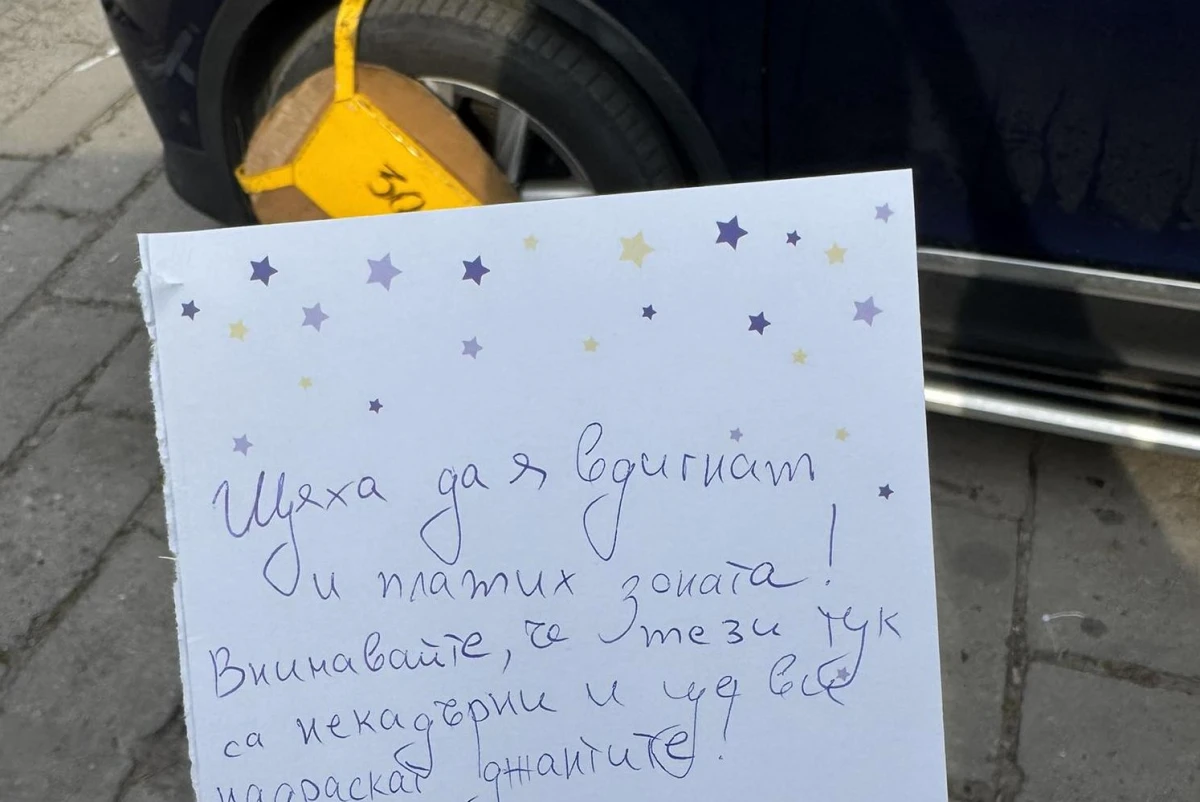 30
Щяха да я вдигнат
и платих зоната!
Внимавайте, че тези тук
са некадърни и ще ви
надраскат джантите!